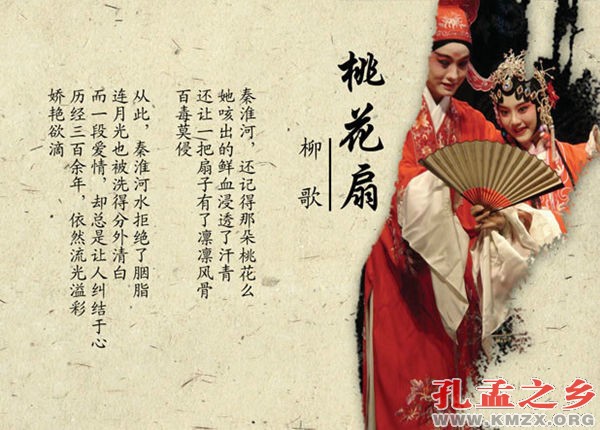 桃花扇
柳歌
秦淮河，还记得那朵桃花么
她咳出的鲜血浸透了汗青
还让一把扇子有了凛凛风骨
百毒莫侵
从此，秦淮河水拒绝了胭脂
连月光也被洗得分外清白
而一段爱情，却总是让人纠结于心
历经三百余年，依然流光溢彩
娇艳欲滴
孔孟之乡
WWW.KMZX.ORG